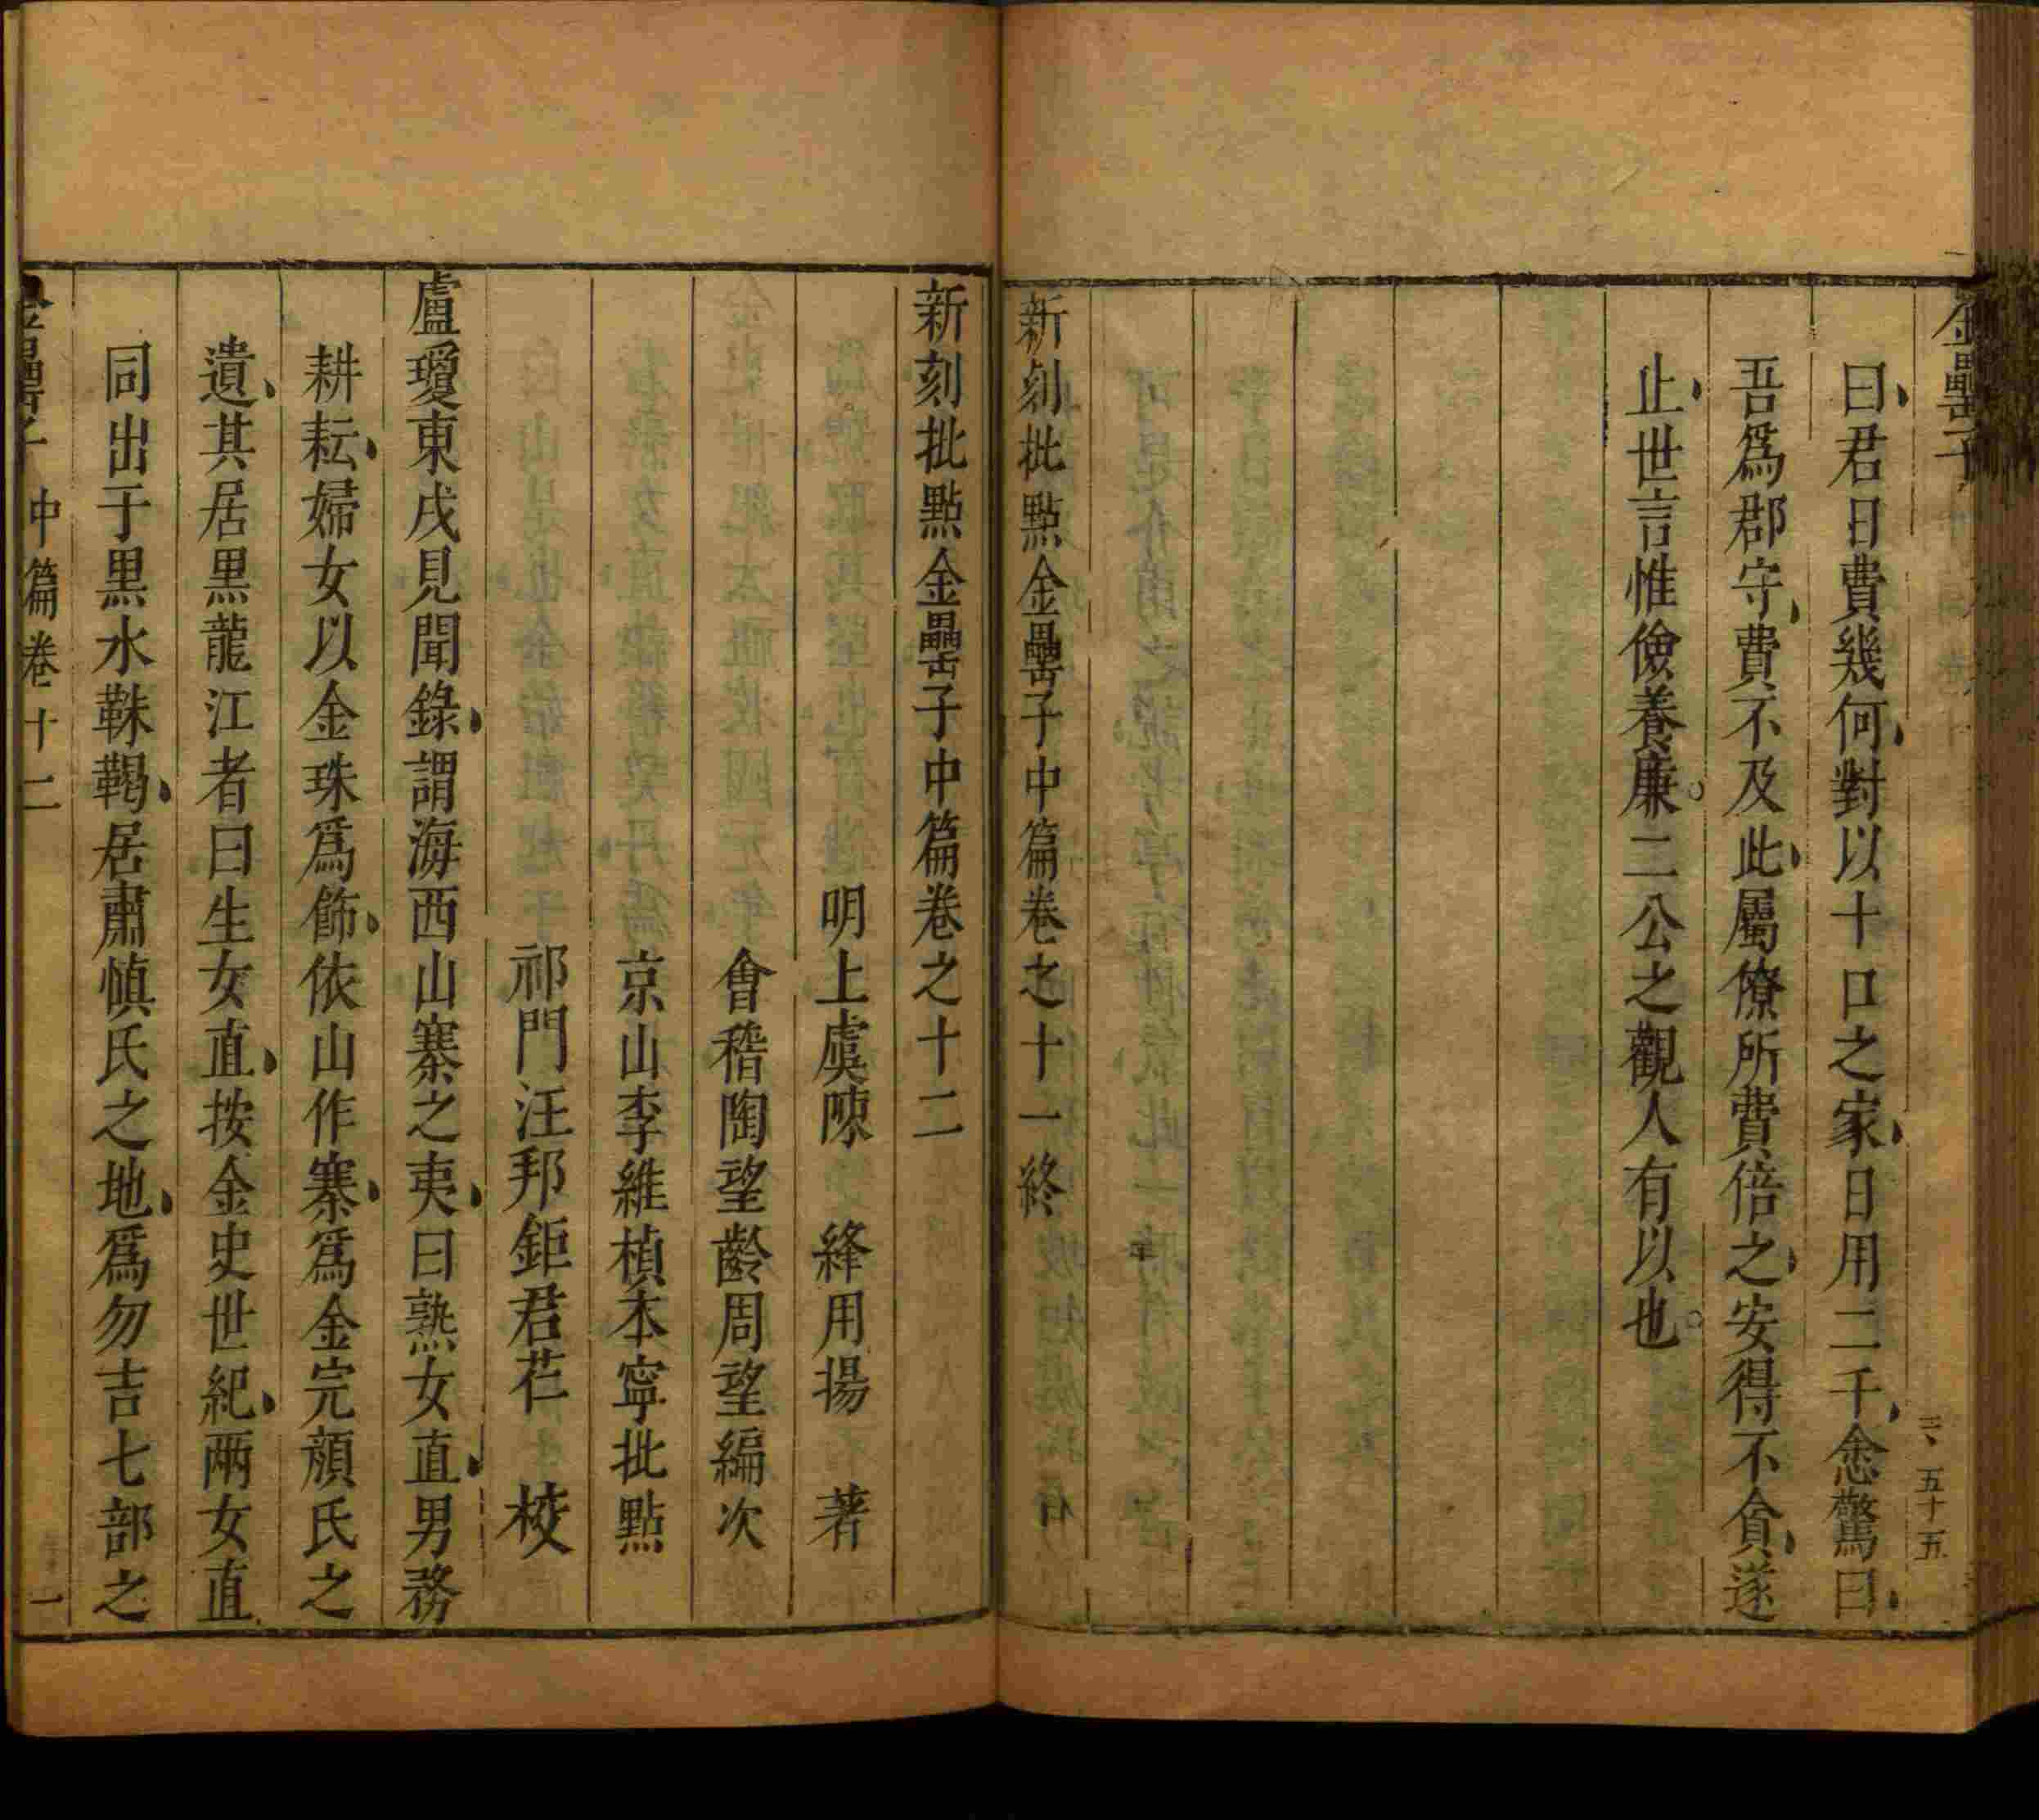 金罍子
三、五十五
曰君日費幾何對以十口之家日用二千悆驚曰
吾爲郡守費不及此屬僚所費倍之安得不貪遂
止世言惟儉養廉二公之觀人有以也
新刻批點金罍子中篇卷之十一終
新刻批點金罍子中篇卷之十二
明上虞陳 絳用揚 著
會稽陶望齡周望編次
京山李維楨本寧批點
祁門汪邦鉅君芒 校
盧瓊東戍見聞錄謂海西山寨之夷曰熟女直男務
耕耘婦女以金珠爲飾依山作寨爲金完顏氏之
遺其居黑龍江者曰生女直按金史世紀兩女直
同出于黒水靺鞨居肅慎氏之地爲勿吉七部之
金罍子 中篇卷十二
一